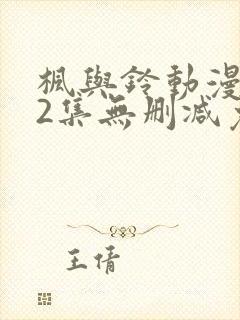 楓與鈴動漫
2集無刪減
王倩